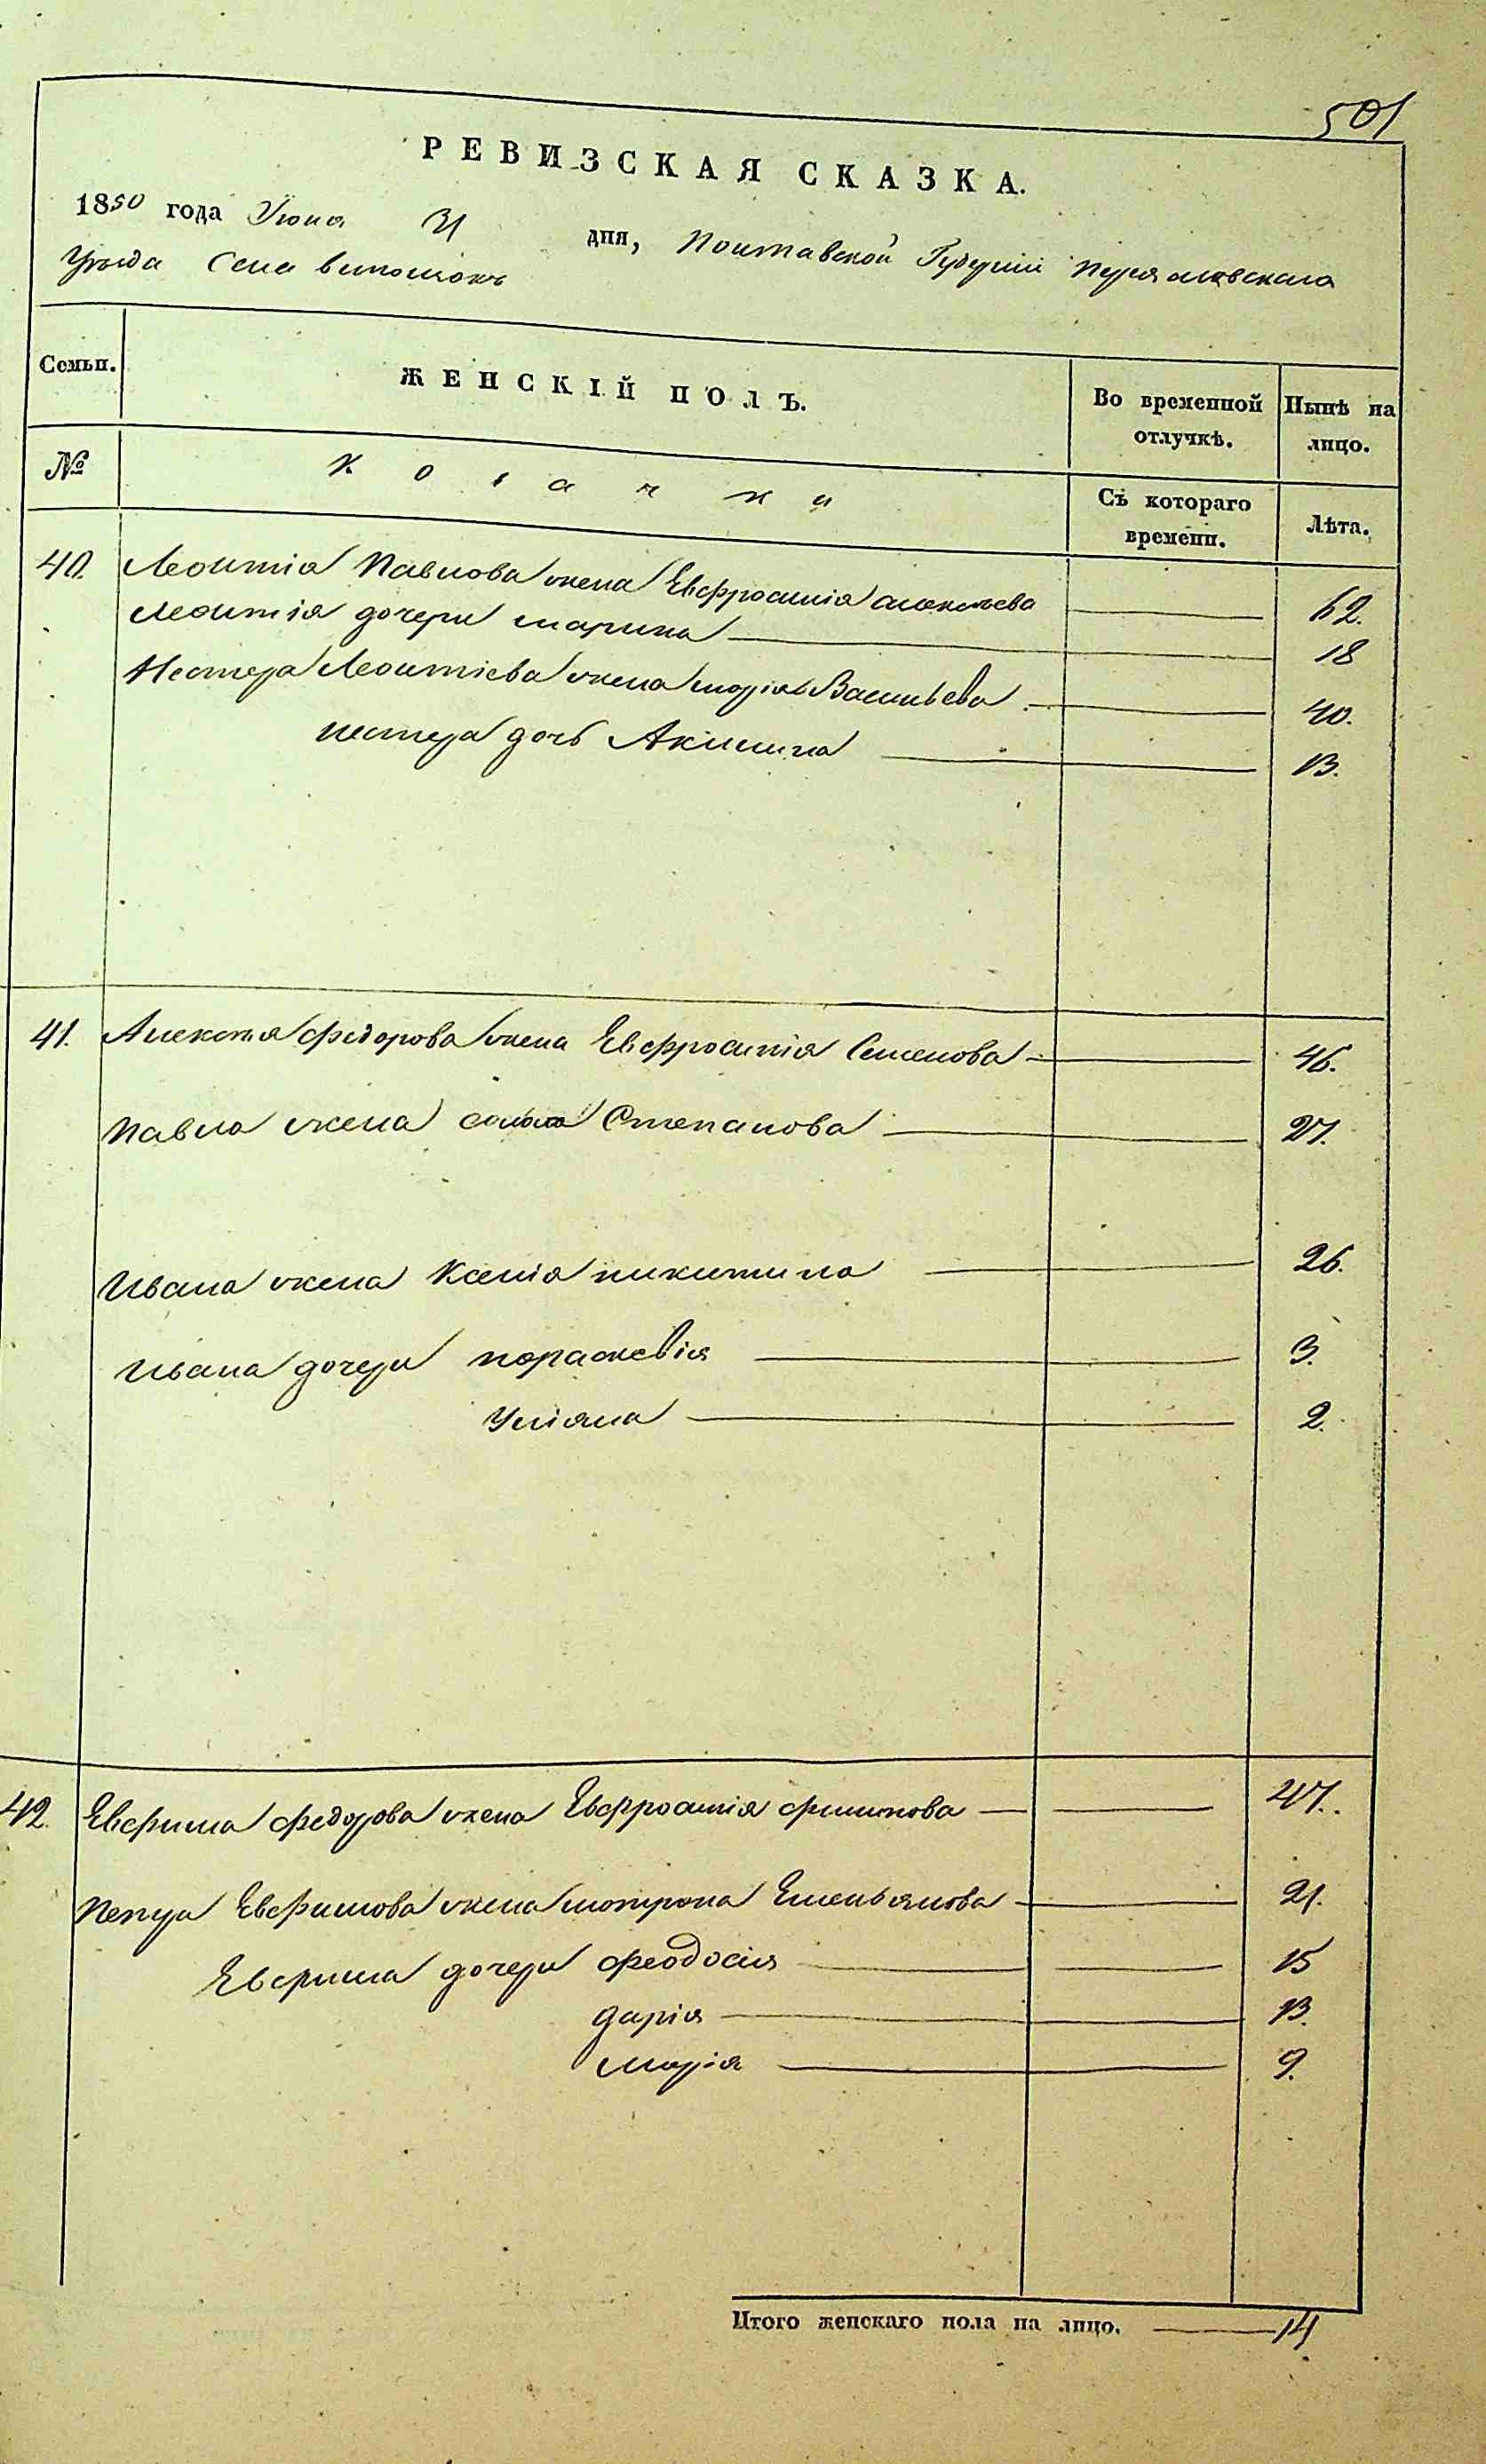 501
РЕВИЗСКАЯ СКАЗКА.
1850 года Июна 31 дня, Полтавской Губерніи Переяславскаго
Уѣзда Села
Семьи. ЖЕНСКІЙ ПОЛЪ. Во временной отлучкѣ. Нынѣ на лицо.
№ Козачки Съ котораго времени. Лѣта.
40. Леонтія Павлова жена Евфросинія Алексѣева 62.
Леонтія дочери Марина 18
Нестера Леонтіева жена Марія Васильева 40.
Нестера дочь Акилина 13.
41. Алексѣя Федорова жена Евфросинія Семенова 46.
Павла жена Степанова 27.
Ивана жена Ксенія Никитина 26.
Ивана дочери Параскевія 3.
Уліяна 2.
42. Евфима Федорова жена Евфросинія Филипова 47.
Петра Евфимова жена Мотрона Емельянова 21.
Евфима дочери Феодосія 15
Дарія 13.
Марія 9.
Итого женскаго пола на лицо. 14